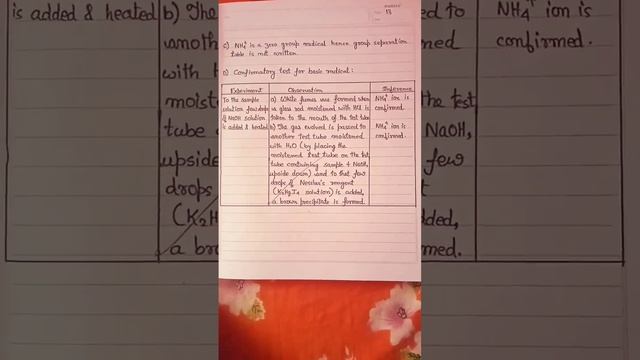 13
c) NH4+ is a zero group radical hence group separation
table is not written.
D) Confirmatory test for basic radical:
Experiment Observation Inference
To the sample solution few drops of NaOH solution is added & heated
a) White fumes are formed when
a glass rod moistened with HCl is
taken to the mouth of the test tube
NH4+ ion is
confirmed.
b) The gas evolved is passed to
another test tube moistened
with H2O (by placing the
moistened test tube on the test
tube containing sample + NaOH,
upside down) and to that few
drops of Nessler's reagent
(K2HgI4 solution) is added,
a brown precipitate is formed.
NH4+ ion is
confirmed.
is added & heated
b) The
anoth
with H
moist
tube
upside
drops
(K2H
a bro
ed to
ned
the
the test
NaOH,
few
t
dded,
med.
NH4+ ion is
confirmed.